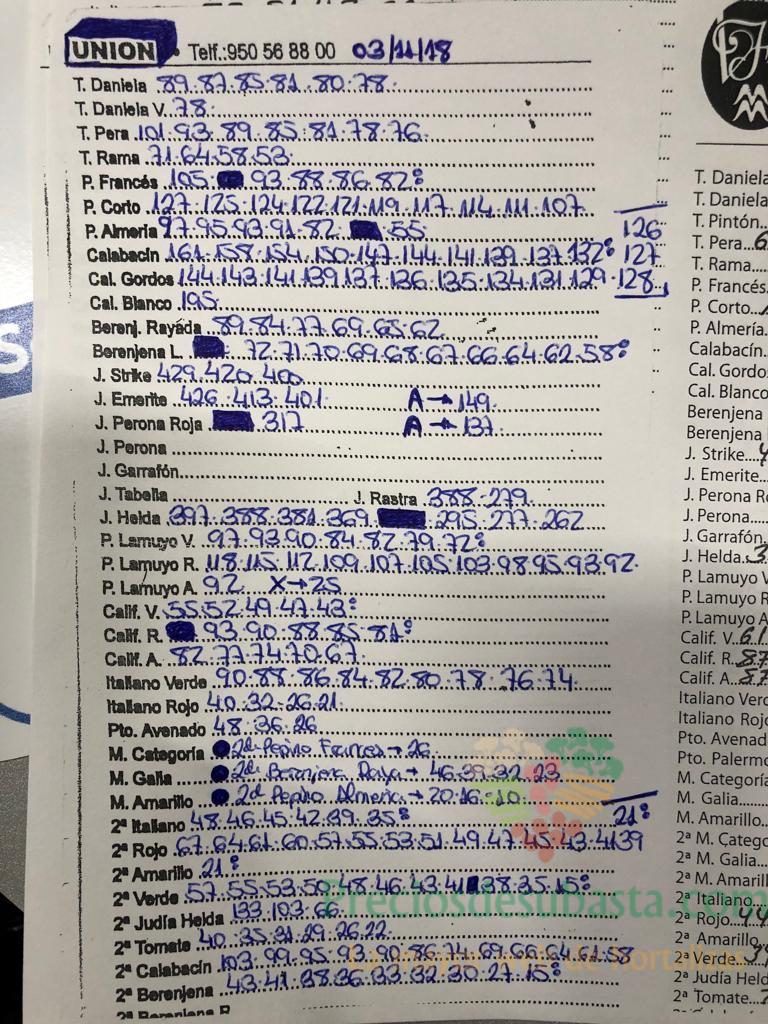 UNION Telf.:950 56 88 00 03/11/18
T. Daniela 89.87.85.81.80.78.
T. Daniela V. 78.
T. Pera 101.93.89.85.81.78.76.
T. Rama 71.64.58.53.
P. Francés 105. 93.88.86.82:
P. Corto 127.125.124.122.121.119.117.114.111.107.
P. Almería 97.95.93.91.82. 55. 126
Calabacín 161.158.154.150.147.144.141.139.137.132: 127
Cal. Gordos 144.143.141.139.137.136.135.134.131.129. 128
Cal. Blanco 195.
Berenj. Rayada 89.84.77.69.65.62.
Berenjena L. 72.71.70.69.68.67.66.64.62.58:
J. Strike 429.420.400.
J. Emerite 426.413.401. A→149.
J. Perona Roja 317 A→137.
J. Perona
J. Garrafón
J. Tabella J. Rastra 388.279.
J. Helda 397.388.381.369. 295.277.262
P. Lamuyo V. 97.93.90.84.82.79.72:
P. Lamuyo R. 118.115.112.109.107.105.103.98.95.93.92.
P. Lamuyo A. 92. X→25
Calif. V. 55.52.49.47.43:
Calif. R. 93.90.88.85.81:
Calif. A. 82.77.74.70.67.
Italiano Verde 90.88.86.84.82.80.78.76.74.
Italiano Rojo 40.32.26.21.
Pto. Avenado 48.36.26
M. Categoría 2da Pepino Frances→26.
M. Galia 2da Berenjena Raya→46.39.32.23
M. Amarillo 2da Pepino Almeria→20.16.10.
2ª Italiano 48.46.45.42.39.35: 21:
2ª Rojo 67.64.61.60.57.55.53.51.49.47.45.43.41.39
2ª Amarillo 21:
2ª Verde 57.55.53.50.48.46.43.41.38.35.15:
2ª Judía Helda 133.103.66.
2ª Tomate 40.35.31.29.26.22.
2ª Calabacín 103.99.95.93.90.86.74.69.66.64.61.58
2ª Berenjena 43.41.38.36.33.32.30.27.15:
2ª Berenjena R
Preciosdesubasta.com
T. Daniela
T. Daniela
T. Pintón
T. Pera
T. Rama
P. Francés
P. Corto
P. Almería
Calabacín
Cal. Gordo
Cal. Blanco
Berenjena
Berenjena
J. Strike
J. Emerite
J. Perona R
J. Perona
J. Garrafón
J. Helda
P. Lamuyo V
P. Lamuyo R
P. Lamuyo A
Calif. V. 61
Calif. R. 87
Calif. A. 87
Italiano Verd
Italiano Rojo
Pto. Avenad
Pto. Palermo
M. Categoría
M. Galia
M. Amarillo
2ª M. Catego
2ª M. Galia
2ª M. Amarill
2ª Italiano
2ª Rojo 44
2ª Amarillo
2ª Verde
2ª Judía Held
2ª Tomate